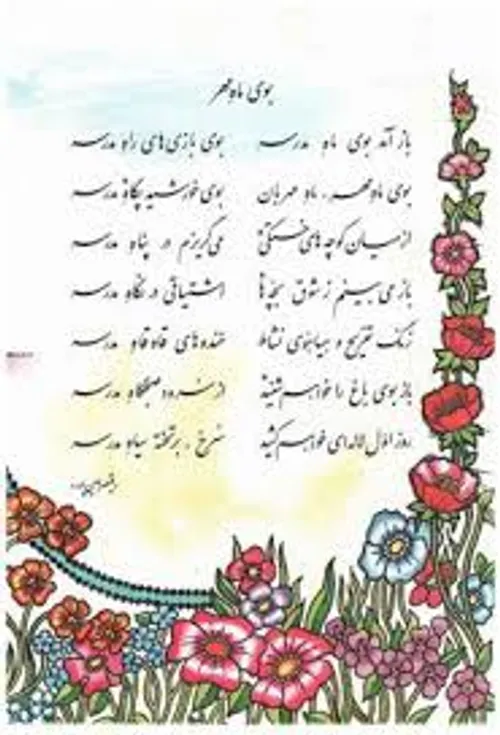 بوی ماه مهر
باز آمد بوی ماه مدرسه بوی بازی‌های راه مدرسه
بوی ماه مهر، ماه مهربان بوی خورشید پگاه مدرسه
از میان کوچه‌های خستگی می‌گریزم در پناه مدرسه
باز می‌بینم ز شوق بچه‌ها اشتیاقی در نگاه مدرسه
زنگ تفریح و هیاهوی نشاط خنده‌های قاه قاه مدرسه
باز بوی باغ را خواهم شنید از سرود صبحگاه مدرسه
روز اول لاله‌ای خواهم کشید سرخ، بر تخته سیاه مدرسه
قیصر امین‌پور